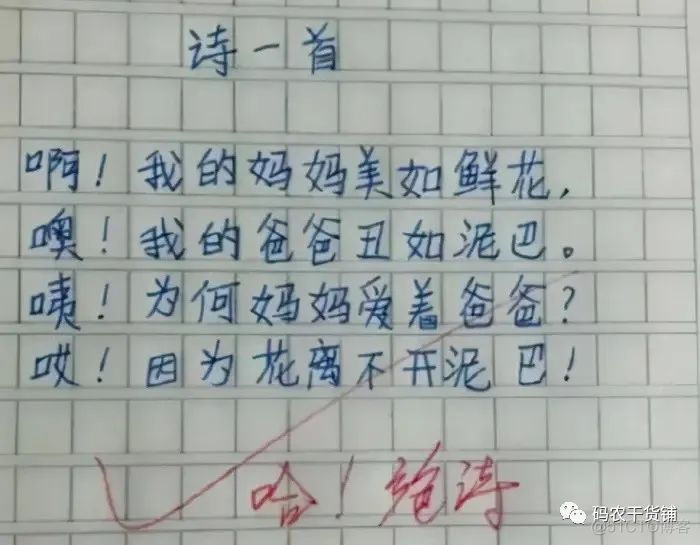 诗一首
啊！我的妈妈美如鲜花，
噢！我的爸爸丑如泥巴。
咦！为何妈妈爱着爸爸？
哎！因为花离不开泥巴！
哈！绝诗
码农干货铺
@51CTO博客